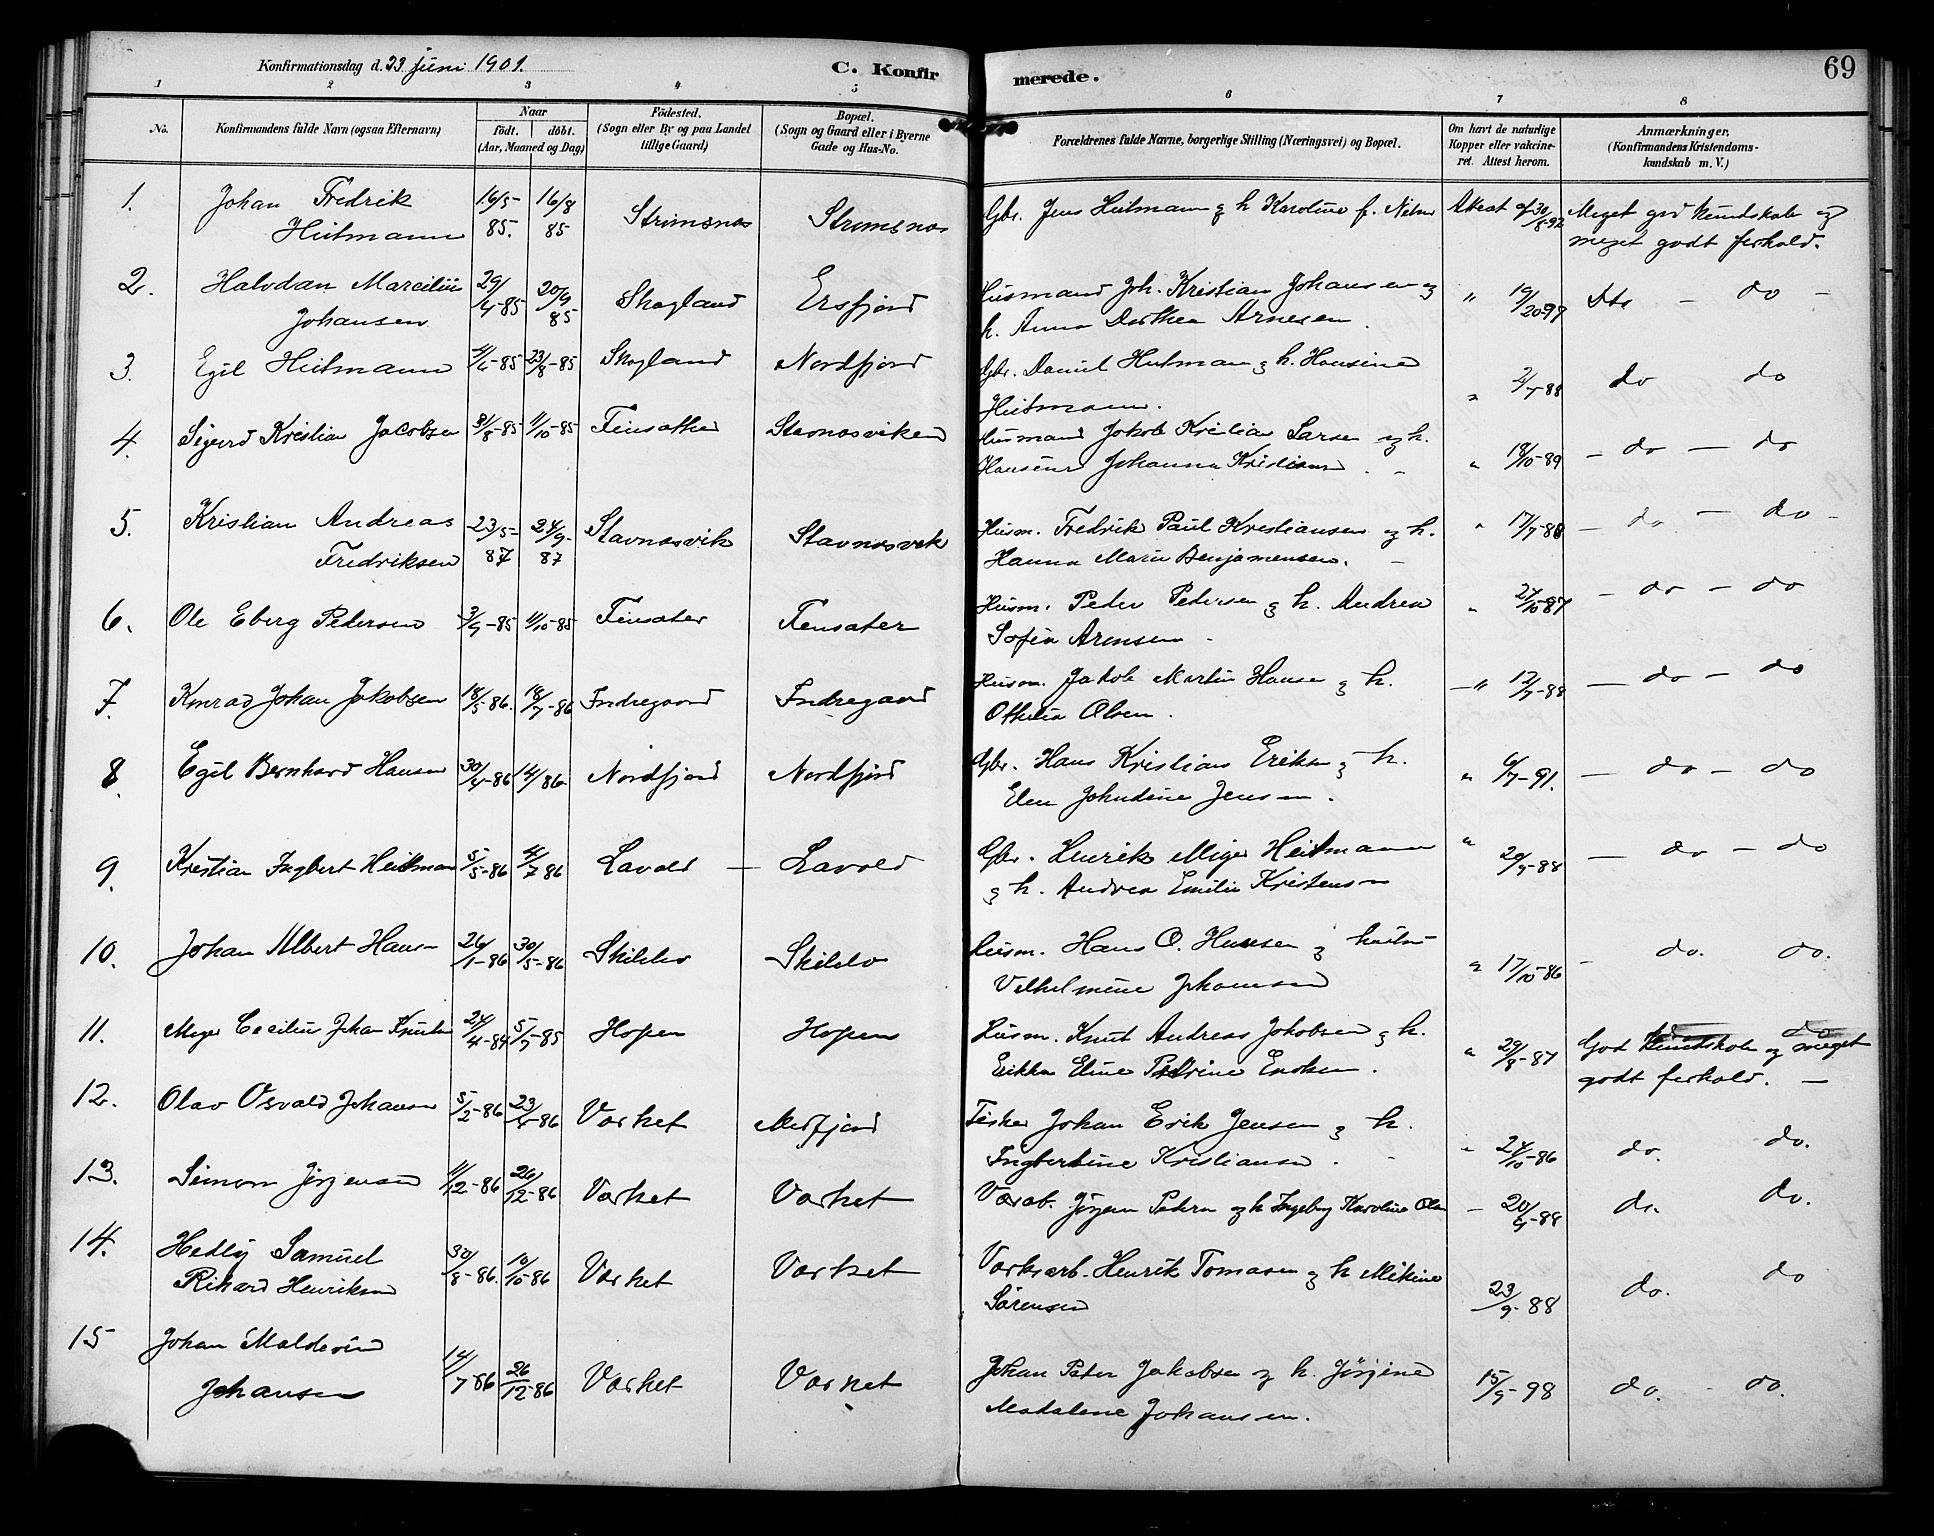 Konfirmationsdag d. 23 juni 1901.
C. Konfirmerede.
69
1 2 3 4 5 6 7 8
No.
Konfirmandens fulde Navn (ogsaa Efternavn)
Naar
födt. döbt.
(Aar, Maaned og Dag)
Födested.
(Sogn eller By og paa Landet
tillige Gaard)
Bopæl.
(Sogn og Gaard eller i Byerne
Gade og Hus-No.
Forældrenes fulde Navne, borgerlige Stilling (Næringsvei) og Bopæl.
Om havt de naturlige
Kopper eller vakcine-
ret. Attest herom.
Anmærkninger.
(Konfirmandens Kristendoms-
kundskab m. V.)
1. Johan Fredrik 16/5- 16/8
Heitmann 85. 85 Strömsnæs Strömsnæs Gbr. Jens Heitmann og h. Karoline f. Attest af 30/8-92 Meget god kundskab og
meget godt forhold.
2. Halvdan Marcilius 29/4-85 20/9 85 Skogland Ersfjord Husmand Joh. Kristian Johansen og " 19/20-99 Do - do -
Johansen h. Anna Dorthea Arnesen
3. Egil Heitmann 23/8-85 Skogland Nordfjord Gbr. Daniel Heitman og h. Hansine
Heitmann. " do do
4. Sigurd Kristian Jacobsen 31/8-85 11/10-85 Finsæther Stavnæsviken Husmand Jakob Kristian Larsen og h.
Hansine Johanna Kristiansen. - " 18/10-89 - do - do
5. Kristian Andreas 23/5- 24/9- Stavnæsvik Stavnæsvik Husm. Fredrik Paul Kristiansen og h. " 17/7-88 - do - do -
Fredriksen 87 87 Hanna Marie Benjamensen. -
6. Ole Eberg Pedersen 3/9-85 11/10-85 Finsæter Finsæter Husm. Peder Pedersen og h. Andrea " 27/10-87 - do - do
Sofia Arensen -
7. Konrad Johan Jakobsen 18/5-86. 18/7-86 Indregaard Indregaard Husm. Jakob Martin Hansen og h. - " 12/7-88 - do - do
Othelia Olsen.
8. Egil Bernhard Hansen 30/4-86 14/-86 Nordfjord Nordfjord Gbr. Hans Kristian Eriksen og h. " 6/7-91. - do - do
Elen Johndine Jensen.
9. Kristian Ingbert Heitman 5/5-86 4/7 86 Lavold - Lavold Gbr. Henrik Miger Heitmann " 20/9-88 - do - do
og h. Andrea Emilie Kristensen
10. Johan Albert Hansen 26/1-86 30/5-86 Skeldø Skeldø Husm. Hans O. Hansen og hustru
Vilhelmine Johansen " 17/10-86 - do. do.
11. Meyer Cecilius Johan Knutsen 24/4-84 5/7-85 Hopen Hopen Husm. Knut Andreas Jakobsen og h. do do
Erikka Eline Petrine Enoksen. " 29/8-87 God kundskab og meget
godt forhold. -
12. Olav Osvald Johansen 5/2-86 23/5-86 Værket Mefjord Fisker Johan Erik Jensen og h.
Ingbertine Kristiansen. - " 24/10-86 do. do.
13. Simon Jörgensen 11/12-86 26/12-86 Værket Værket Værarb. Jörgen Pedersen og h Ingeborg Karoline Olsen - 20/9-88 do. do.
14. Hedly Samuel 30/8-86. 10/10-86 Værket Værket Værksarb. Henrik Tomasen og h Mekine 23/9-88 do. do
Rikard Henriksen Sörensen
15 Johan Maldevin
Johansen 14/7-86 26/12-86 Værket Værket Johan Peter Jakobsen og h. Jörgine 15/9-98 do. - do.
Madalene Johansen.